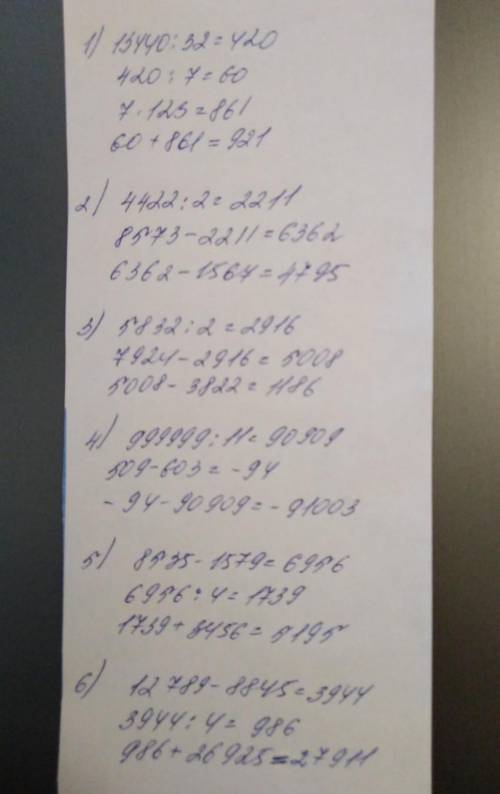 1) 13440 : 32 = 420
420 : 7 = 60
7 · 123 = 861
60 + 861 = 921
2) 4422 : 2 = 2211
8573 - 2211 = 6362
6362 - 1567 = 4795
3) 5832 : 2 = 2916
7924 - 2916 = 5008
5008 - 3822 = 1186
4) 999999 : 11 = 90909
509 - 603 = -94
-94 - 90909 = -91003
5) 8535 - 1579 = 6956
6956 : 4 = 1739
1739 + 3456 = 5195
6) 12789 - 8845 = 3944
3944 : 4 = 986
986 + 26925 = 27911